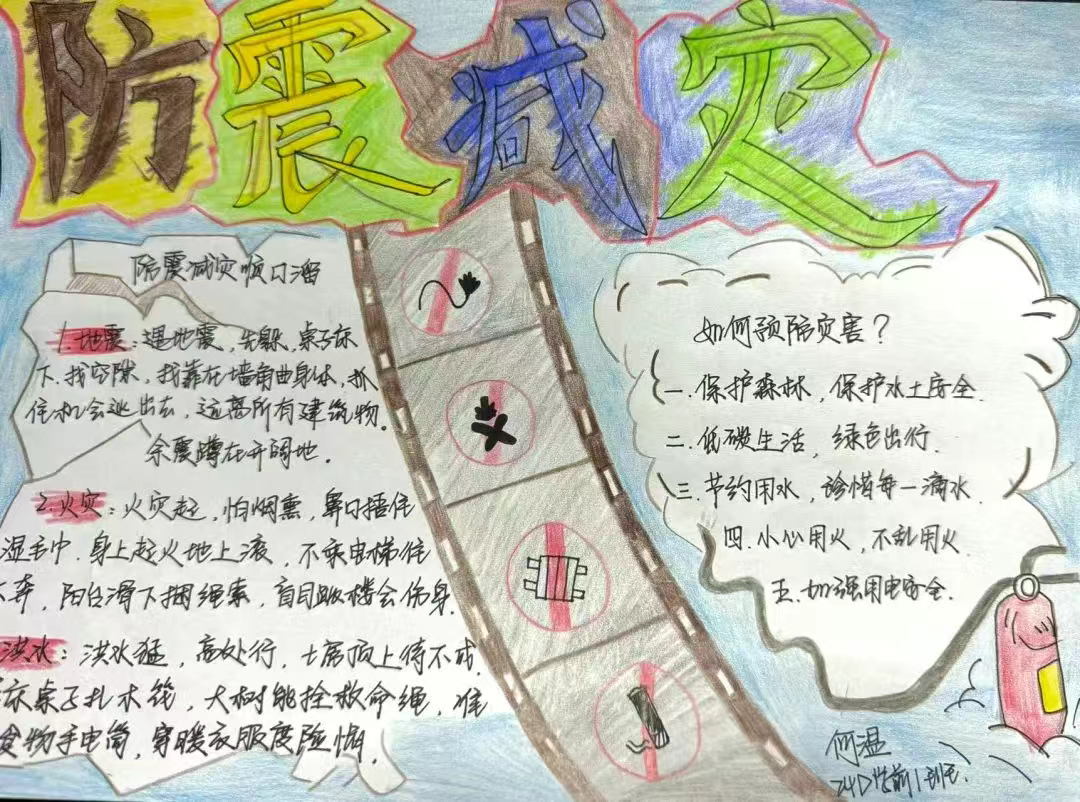 防震减灾
防震减灾顺口溜
1.地震：遇地震，先躲，桌子床
下，找空隙，找靠在墙角曲身体，抓
住机会逃出去，远离所有建筑物。
余震蹲在开阔地。
2.火灾：火灾起，怕烟熏，鼻口捂住
湿毛巾，身上起火地上滚，不乘电梯往
下奔，阳台滑下捆绳索，盲目跳楼会伤身.
洪水：洪水猛，高处行，土房顶上待不成.
床桌子扎木筏，大树能拴救命绳，准
食物手电筒，穿暖衣服度险情.
如何预防灾害？
一.保护森林，保护水土安全.
二.低碳生活，绿色出行.
三.节约用水，珍惜每一滴水.
四.小心用火，不乱用火.
五.加强用电安全.
何温
24D学前1班